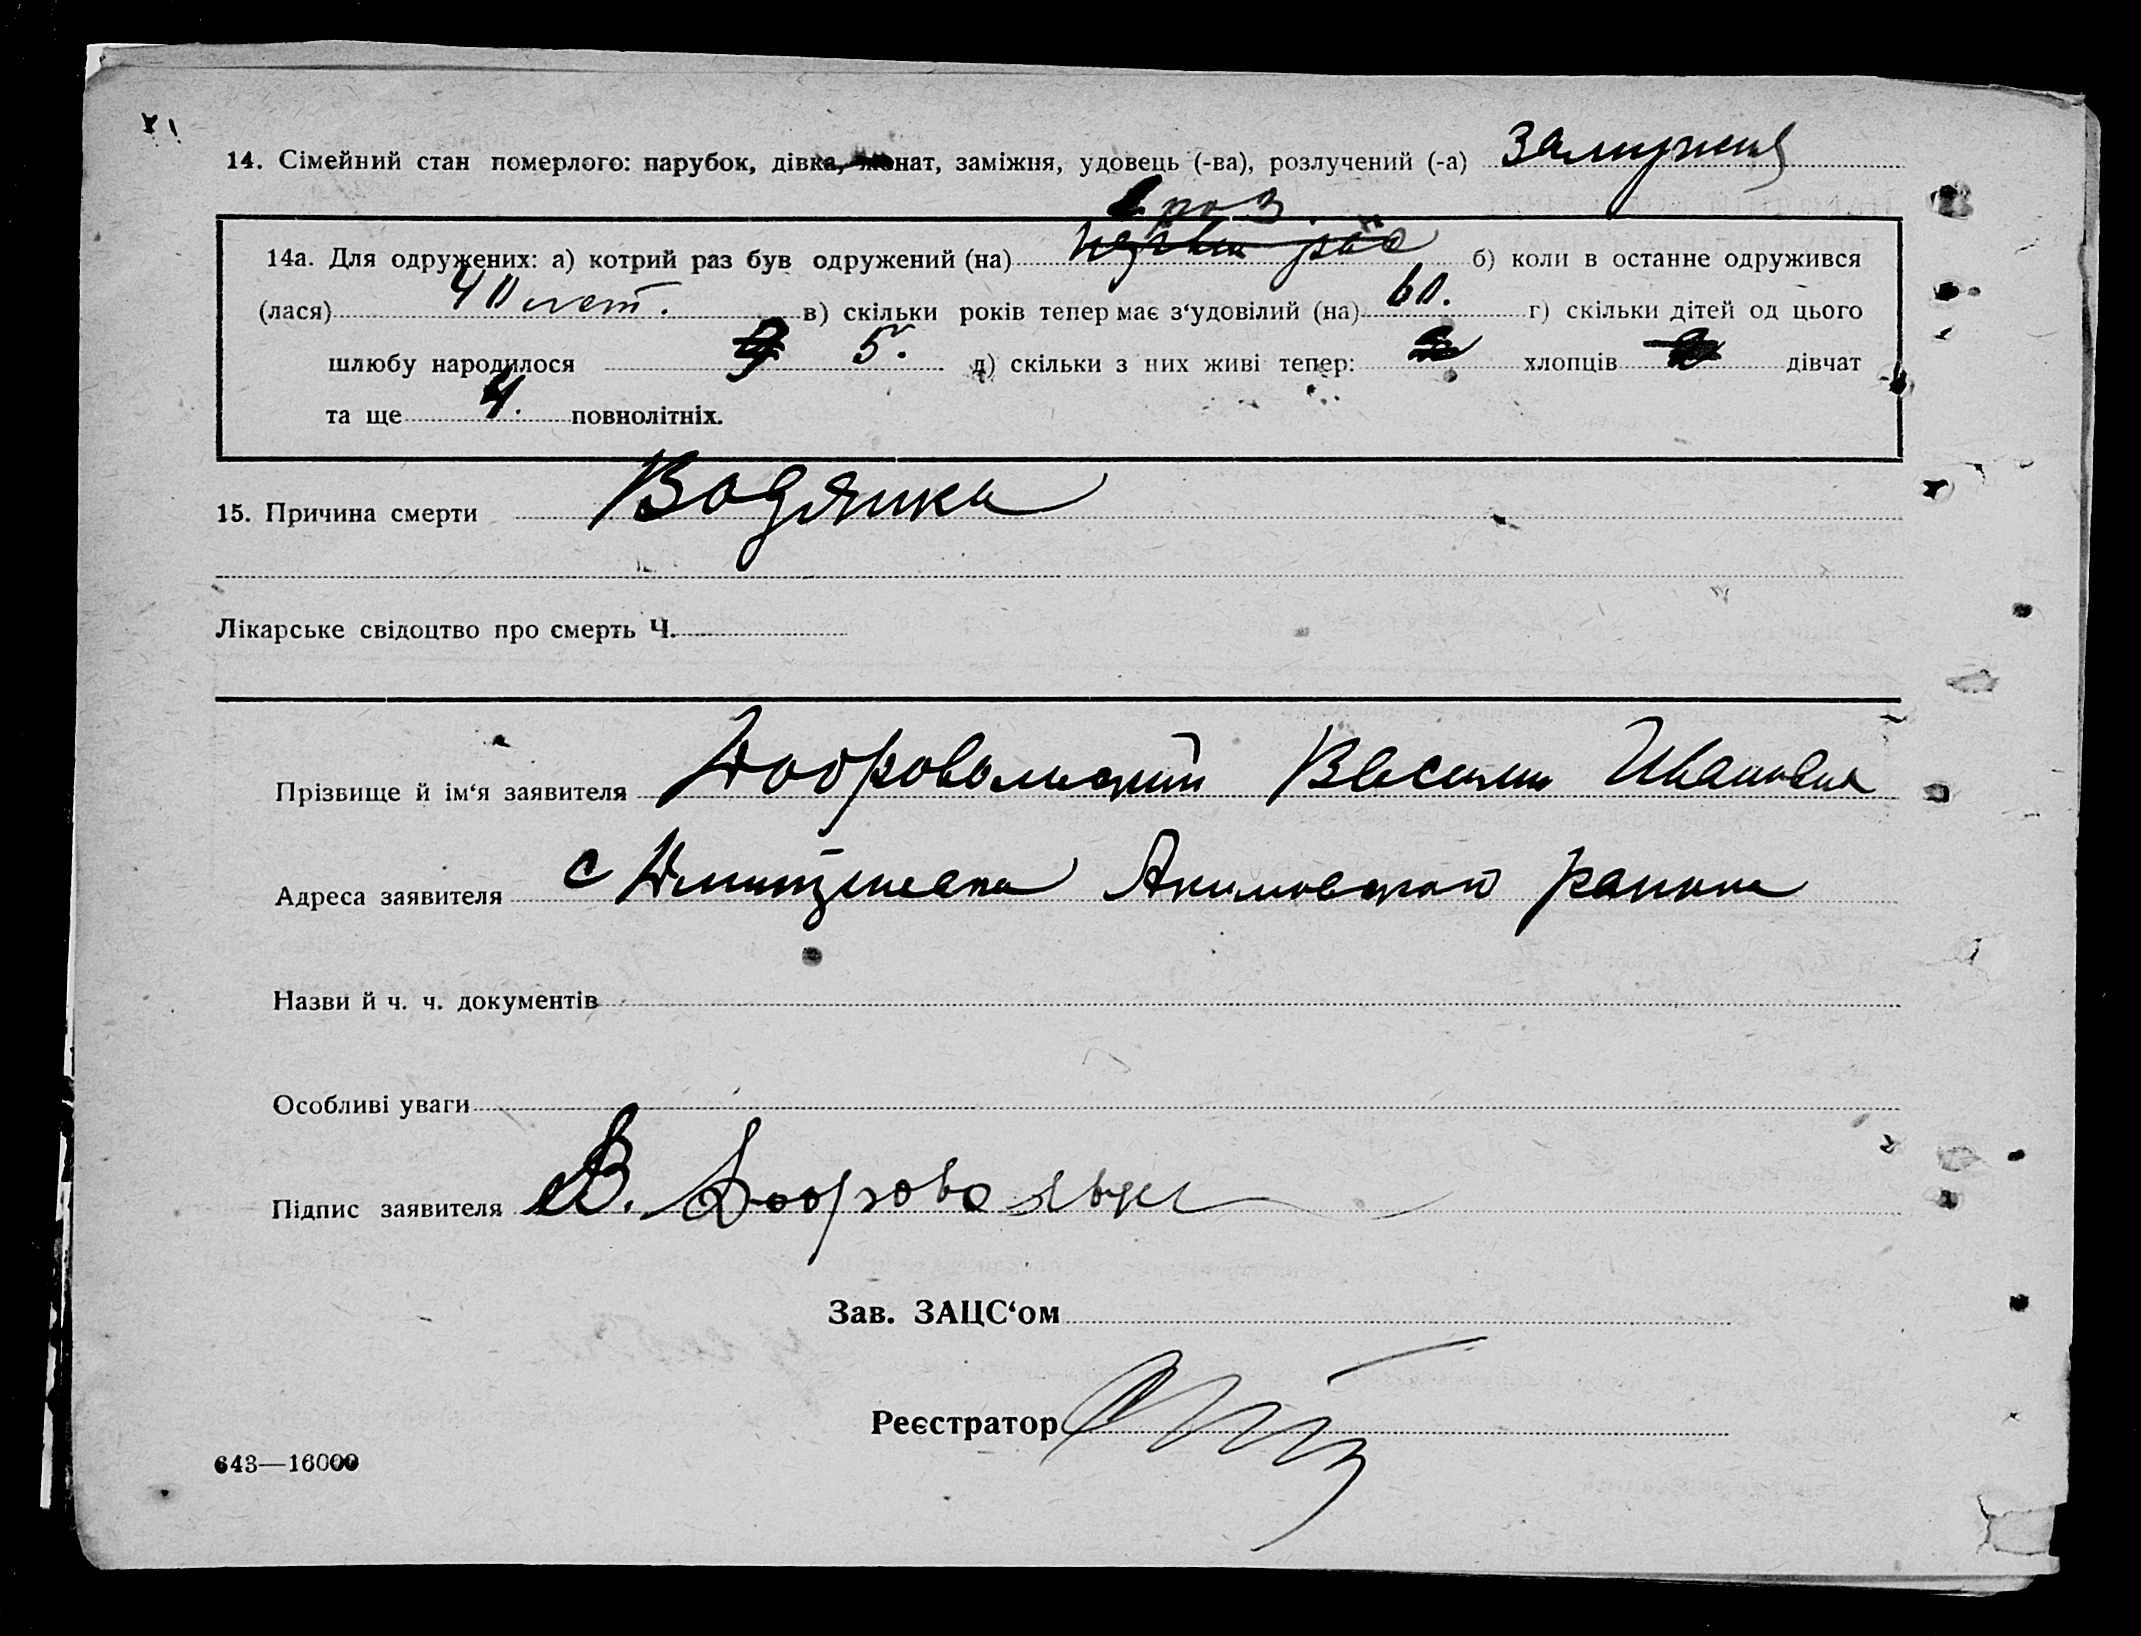 14. Сімейний стан померлого: парубок, дівка, жонат, заміжня, удовець (-ва), розлучений (-а) Замужняя
1 раз.
14а. Для одружених: а) котрий раз був одружений (на) первы раз б) коли в останне одружився
(лася) 40 лет. в) скільки років тепер має з‘удовілий (на) 60. г) скільки дітей од цього
шлюбу народилося 5. д) скільки з них живі тепер: хлопців дівчат
та ще 4. повнолітніх.
15. Причина смерти Водянка
Лікарське свідоцтво про смерть Ч.
Прізвище й ім‘я заявителя Добровольский Василий Иванович
Адреса заявителя с Акимовского района
Назви й ч. ч. документів
Особливі уваги
Підпис заявителя В. Добровольск
Зав. ЗАЦС‘ом
Реєстратор
643—16000